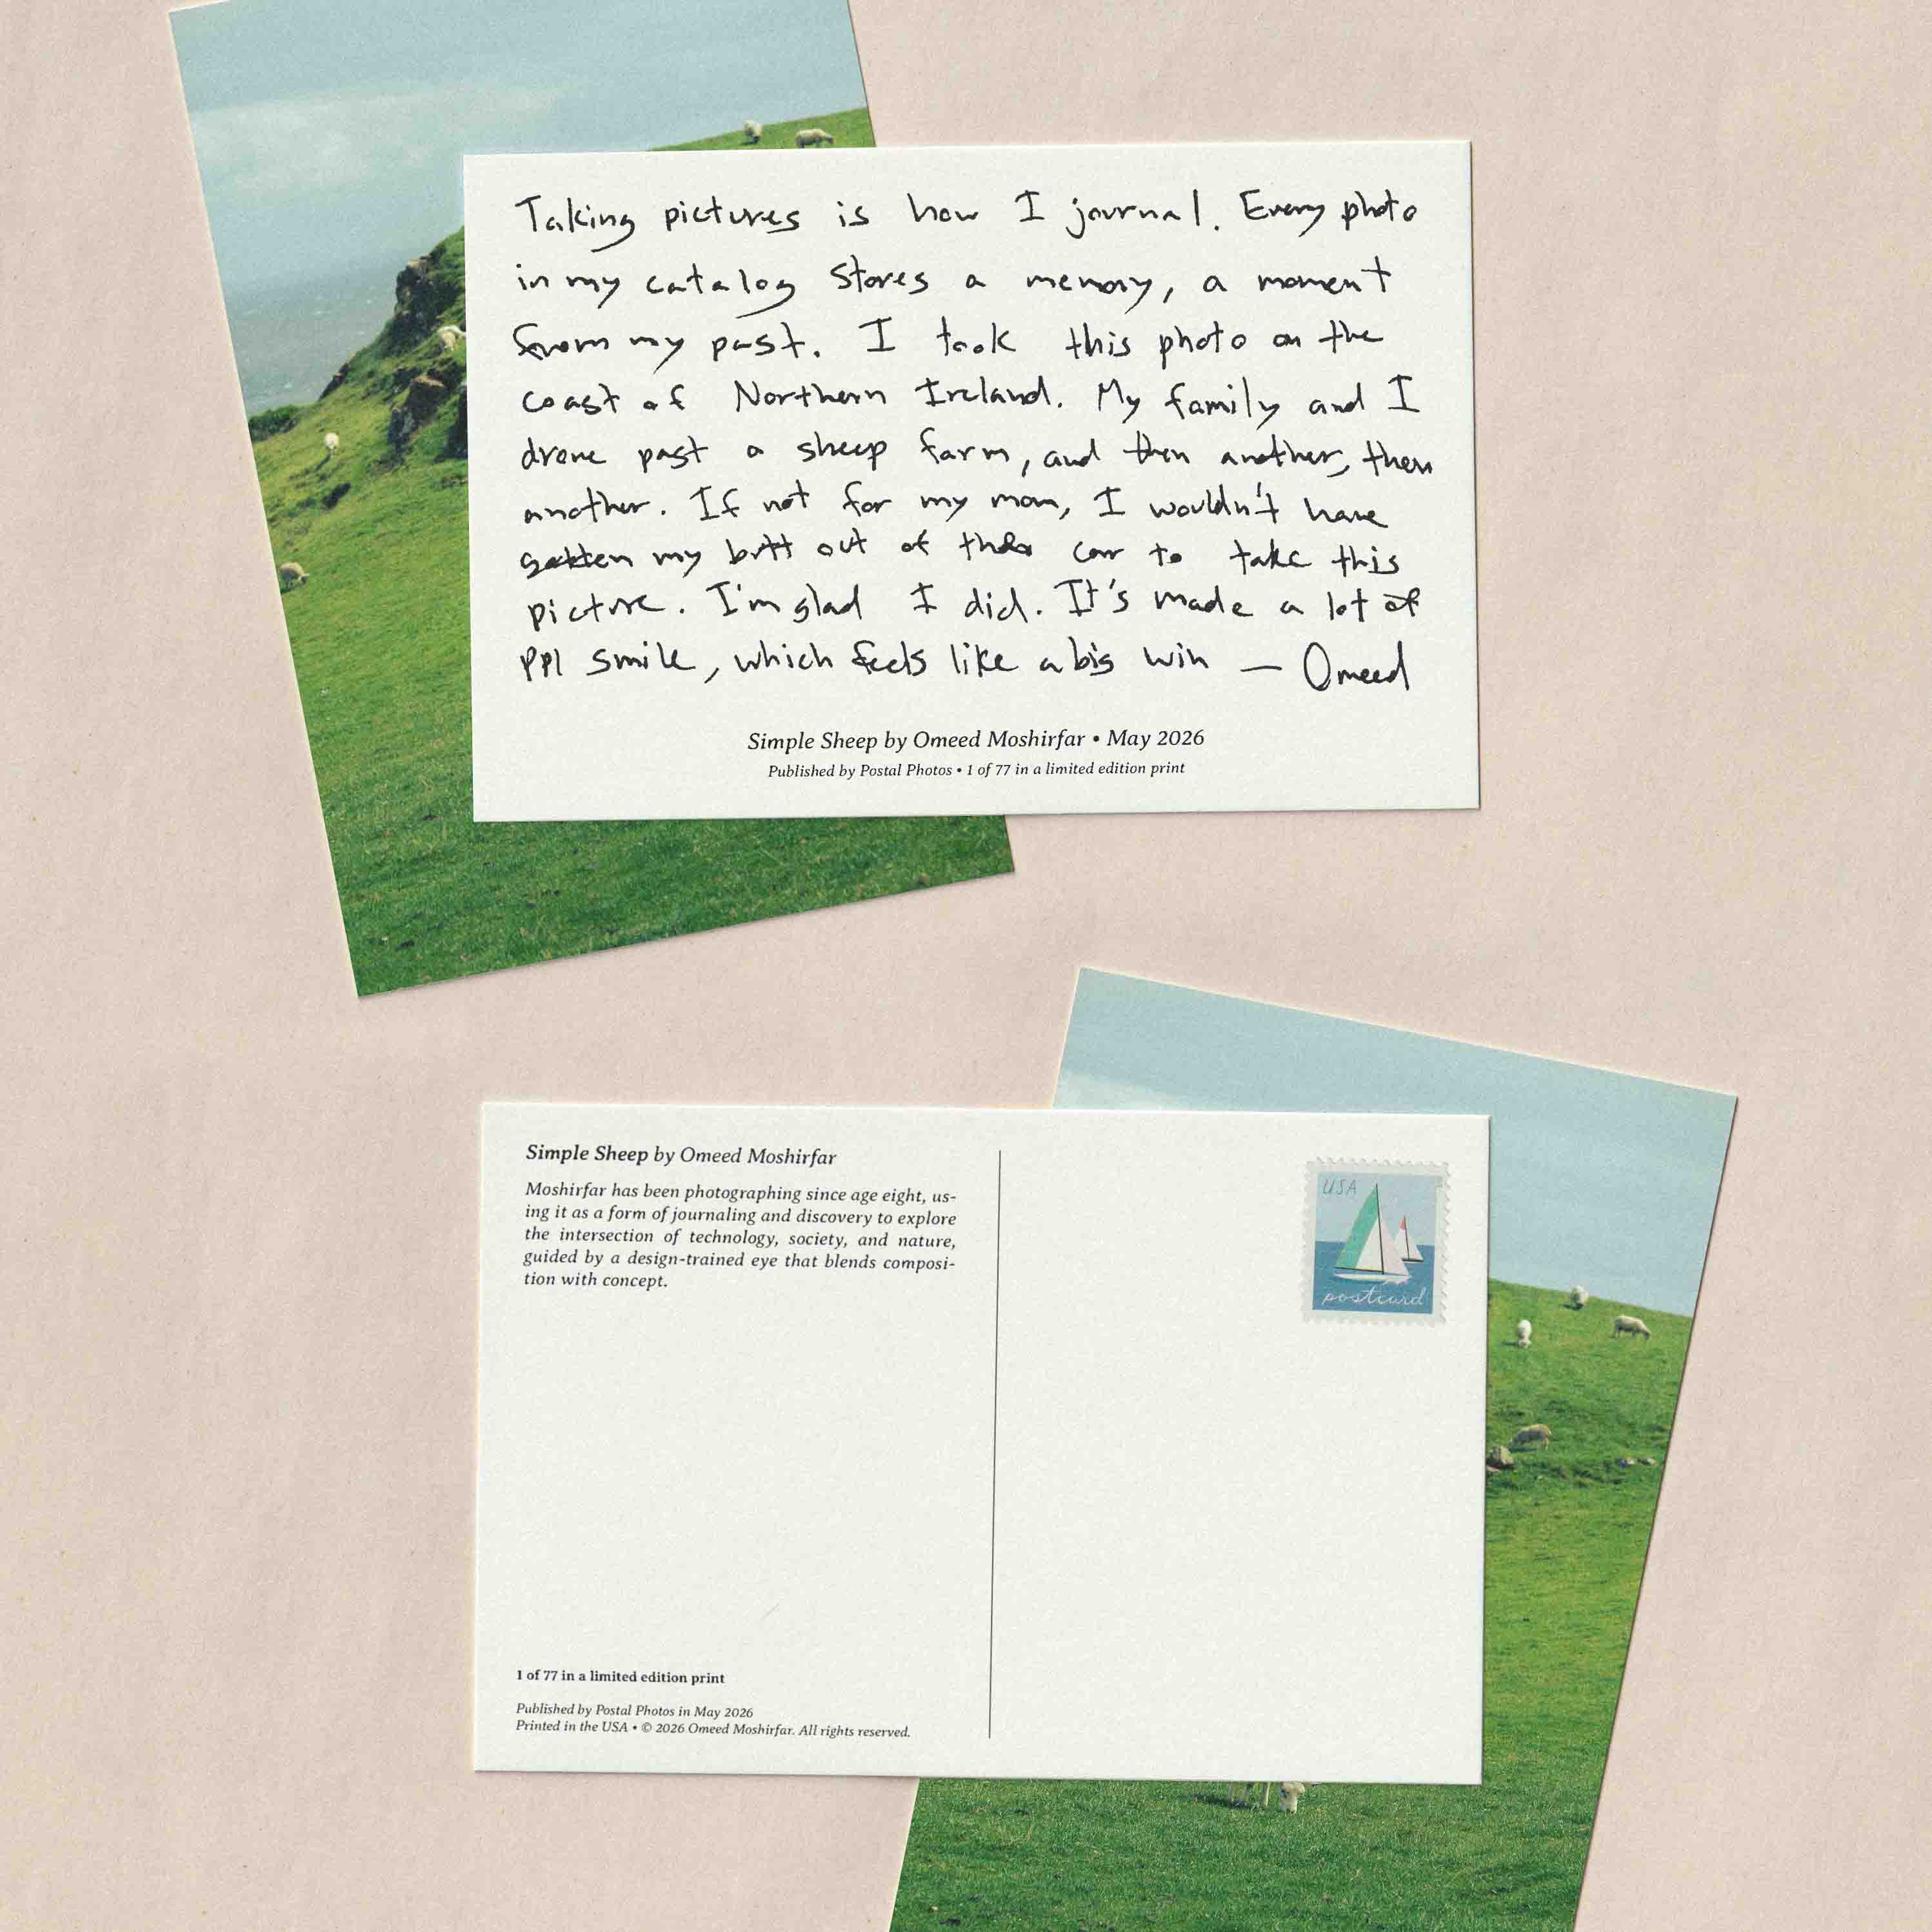 Taking pictures is how I journal. Every photo
in my catalog stores a memory, a moment
from my past. I took this photo on the
coast of Northern Ireland. My family and I
drove past a sheep farm, and then another, then
another. If not for my mom, I wouldn't have
gotten my butt out of the car to take this
picture. I'm glad I did. It's made a lot of
ppl smile, which feels like a big win — Omeed
Simple Sheep by Omeed Moshirfar • May 2026
Published by Postal Photos • 1 of 77 in a limited edition print
Simple Sheep by Omeed Moshirfar
Moshirfar has been photographing since age eight, us-
ing it as a form of journaling and discovery to explore
the intersection of technology, society, and nature,
guided by a design-trained eye that blends composi-
tion with concept.
USA
postcard
1 of 77 in a limited edition print
Published by Postal Photos in May 2026
Printed in the USA • © 2026 Omeed Moshirfar. All rights reserved.